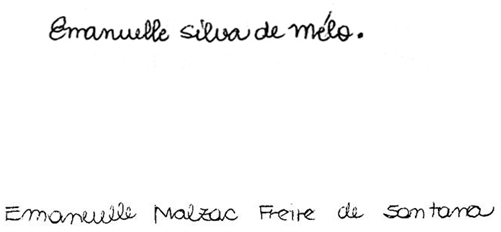 Emanuelle Silva de Mélo.
Emanuelle Malzac Freire de Santana